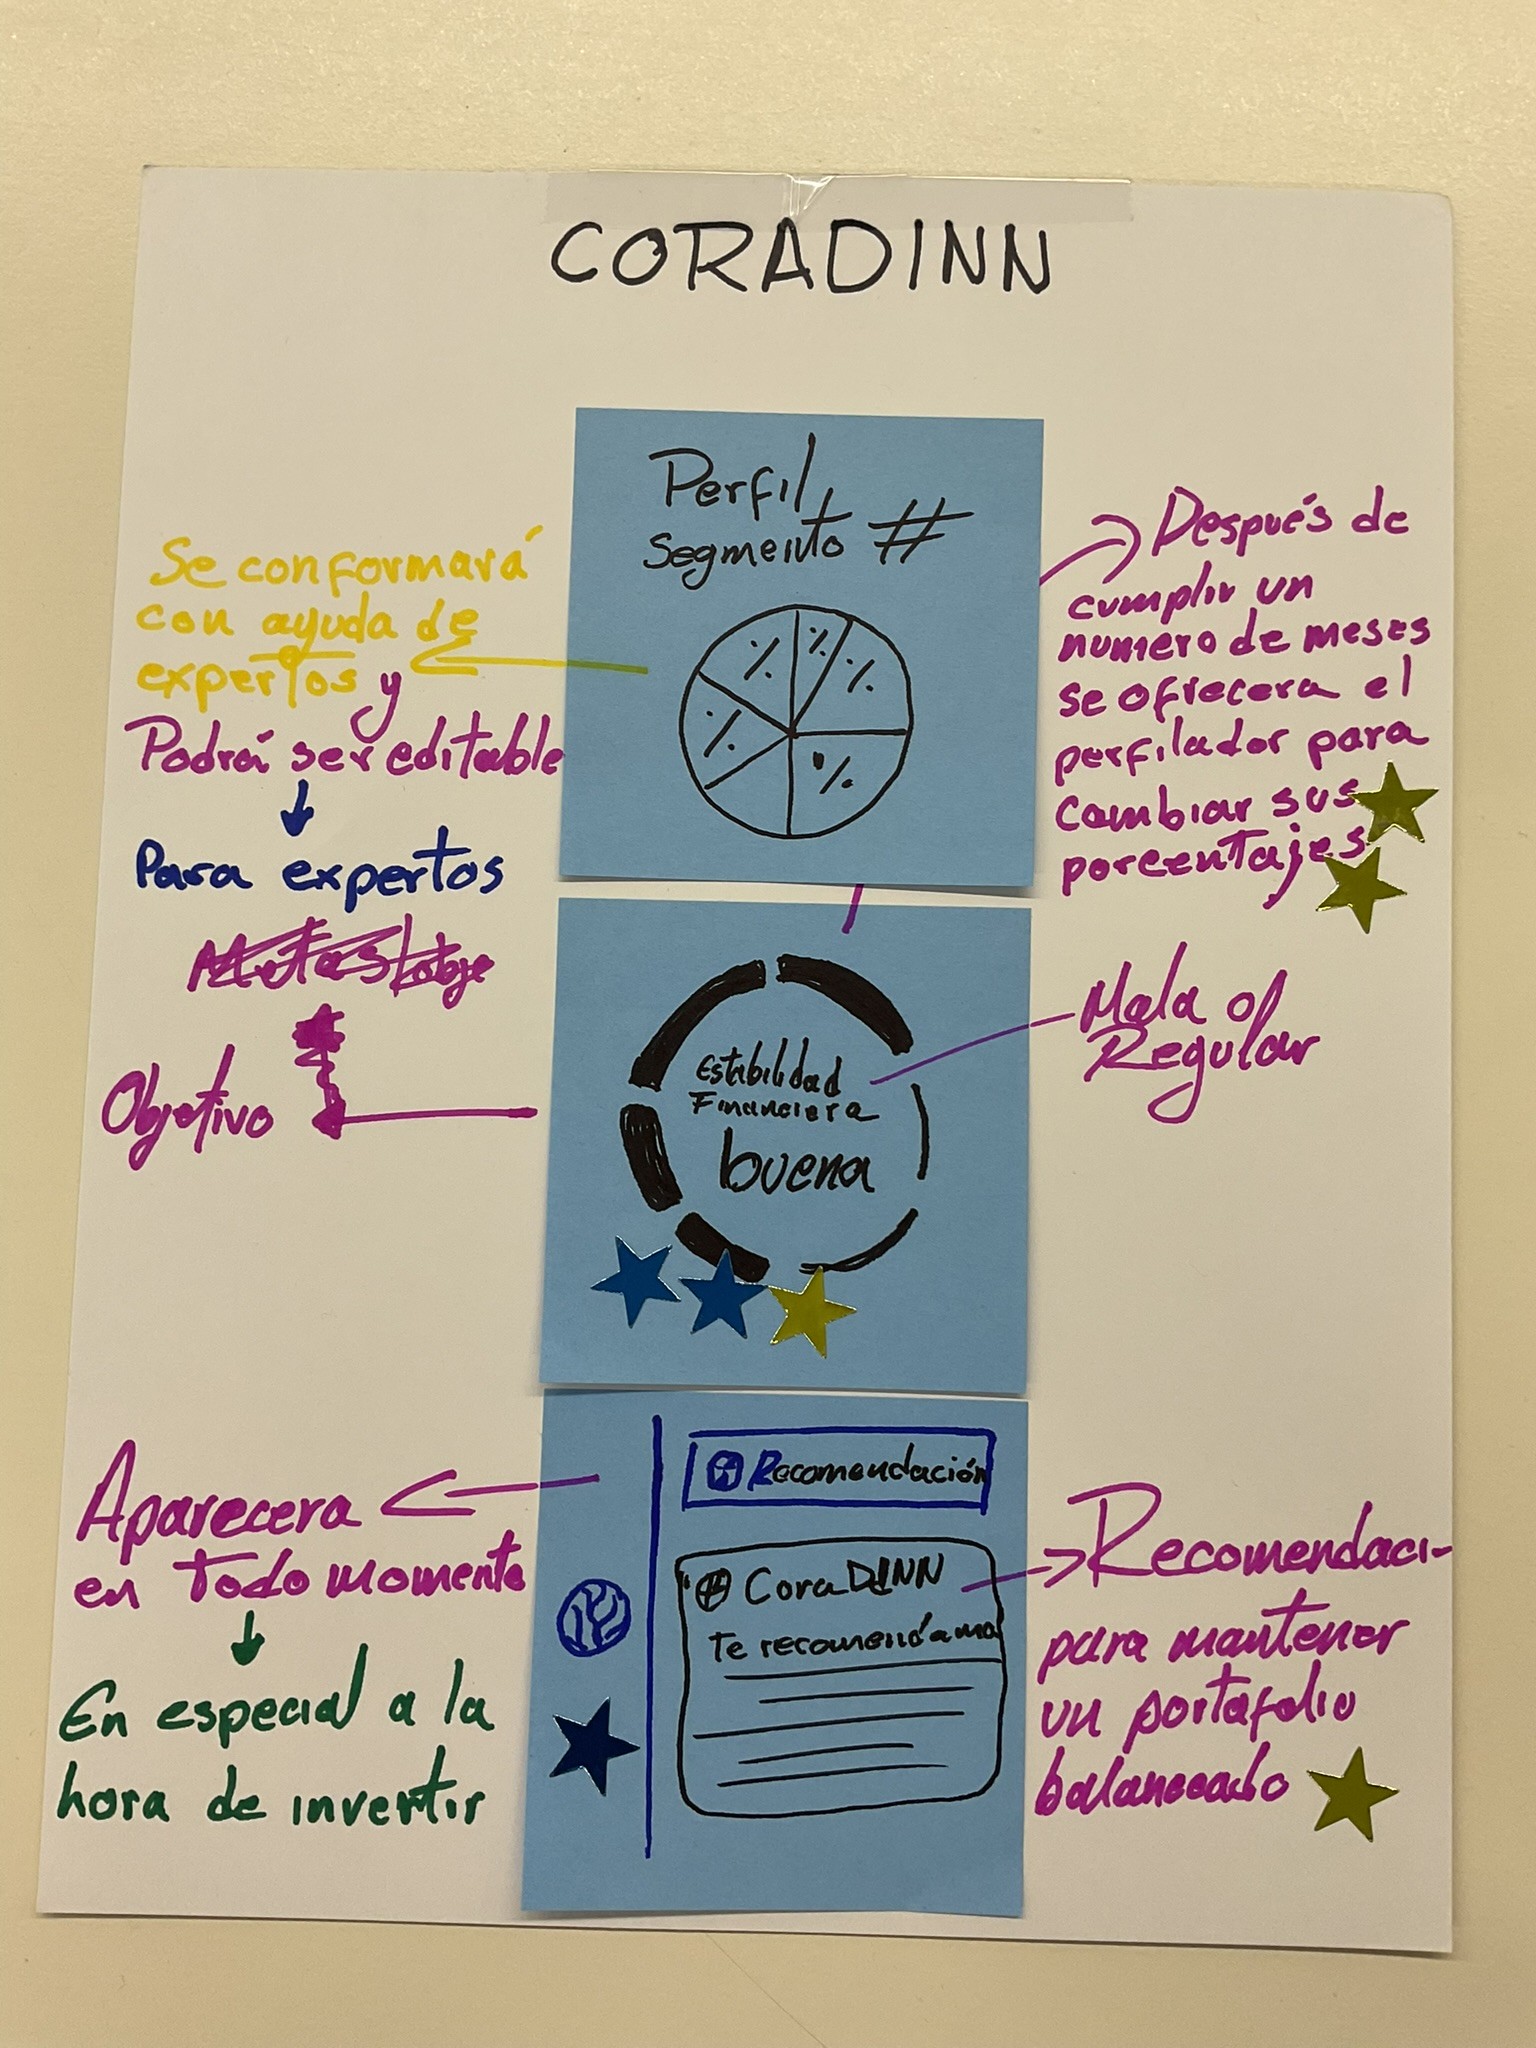 CORADINN
Perfil
segmento #
%
%
%
%
%
Se conformará
con ayuda de
expertos y
Podrá ser editable
Para expertos
Después de
cumplir un
numero de meses
se ofrecera el
perfilador para
cambiar sus
porcentajes
Objetivo
Estabilidad
Financiera
buena
Mala o
Regular
Aparecera
en todo momento
En especial a la
hora de invertir
Recomendación
# CoraDINN
Te recomendamo
Recomendaci-
para mantener
un portafolio
balanceado